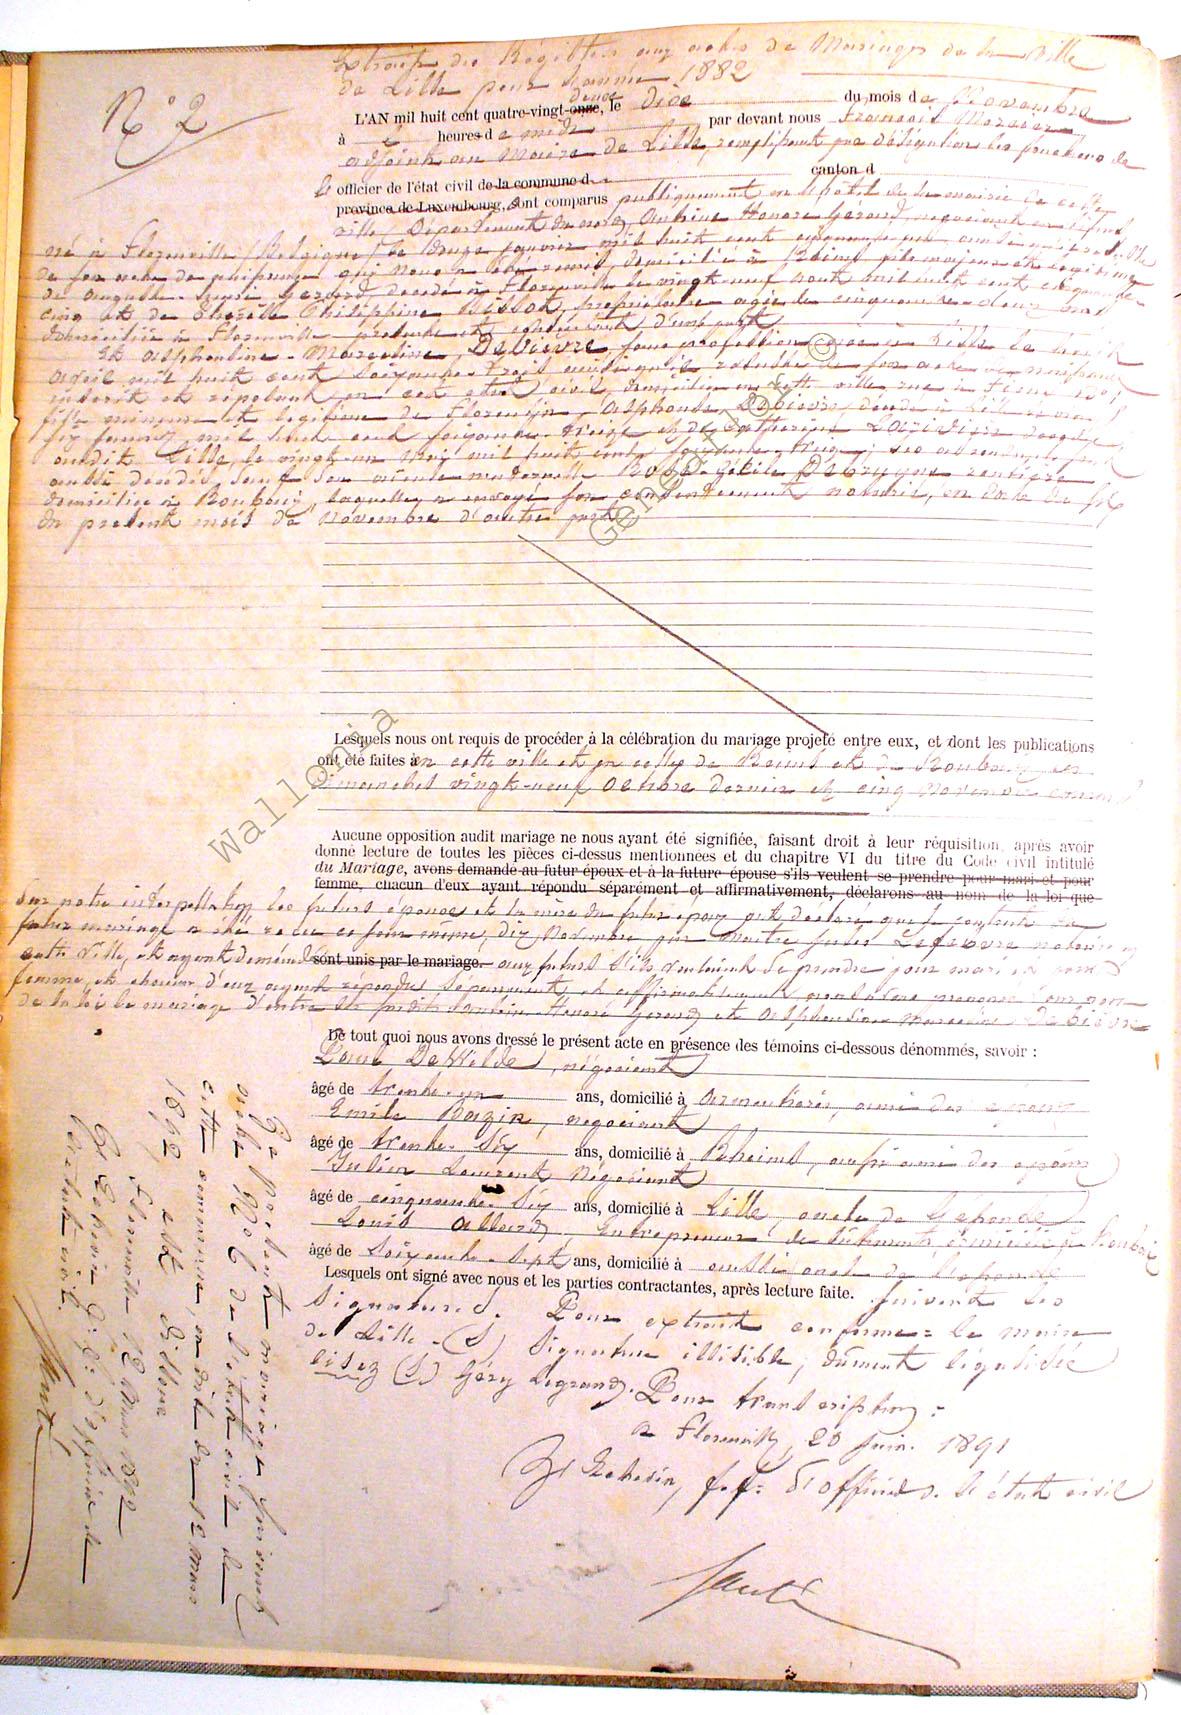 Extrait du Régistre aux actes de Mariages de la Ville
de Lille pour l'année 1882
N° 2
L'AN mil huit cent quatre-vingt-onze, le dix du mois de Novembre
deux
à heures de midi par devant nous François
adjoint au Maire de Lille, remplissant par délégation les fonctions de
officier de l'état civil de la commune d canton d
province de Luxembourg, sont comparus publiquement en l'hôtel de la mairie de cette
ville, Département du nord, Antoine Honoré Gérard, négociant
né à Florenville (Belgique) le douze janvier mil huit cent cinquante
de son acte de naissance qui nous a été remis, domicilié à Reims, fils majeur et légitime
de Auguste Gérard décédé à Florenville le vingt-neuf août mil huit cent cinquante
cinq et de Philippine Bissot, propriétaire agée de cinquante-deux ans
domiciliée à Florenville présente et consentante d'une part
Et Alphonsine Marceline Debièvre, sans profession née à Lille le trente
avril mil huit cent soixante-trois ainsi qu'il résulte de son acte de naissance
inscrit et reposant en cet état civil, domiciliée en cette ville rue
fille mineure et légitime de Florentin Alphonse Debièvre, décédé à Lille
six janvier mil huit cent soixante-treize et de Catherine décédée
audit Lille, le vingt-un mil huit cent soixante-treize; ses
aussi décédés sauf son aïeule maternelle Rose Debruyne rentière
domiciliée à Roubaix, laquelle a envoyé son consentement notarié, en date du six
du présent mois de Novembre d'autre part
Lesquels nous ont requis de procéder à la célébration du mariage projeté entre eux, et dont les publications
ont été faites en cette ville et en celles de Reims et de Roubaix les
Dimanches vingt-neuf Octobre dernier et cinq Novembre courant
Aucune opposition audit mariage ne nous ayant été signifiée, faisant droit à leur réquisition, après avoir
donné lecture de toutes les pièces ci-dessus mentionnées et du chapitre VI du titre du Code civil intitulé
du Mariage, avons demandé au futur époux et à la future épouse s'ils veulent se prendre pour mari et pour
femme, chacun d'eux ayant répondu séparément et affirmativement, déclarons au nom de la loi que
Sur notre interpellation les futurs époux et la mère du futur époux ont déclaré que le contrat de
futur mariage a été reçu ce jour même, dix Novembre par Maître Jules Lefebvre notaire en
cette Ville, et ayant demandé sont unis par le mariage. aux futurs s'ils veulent se prendre pour mari et pour
femme, et chacun d'eux ayant répondu séparément et affirmativement, avons prononcé au nom
de la loi le mariage d'entre les susdits Antoine Honoré Gérard et Alphonsine Marceline Debièvre
De tout quoi nous avons dressé le présent acte en présence des témoins ci-dessous dénommés, savoir :
Paul DeWilde, négociant
âgé de trente-un ans, domicilié à Armentières, ami des époux
Emile Bazin, négociant
âgé de trente-six ans, domicilié à Rheims, aussi ami des époux
Julien Laurent Négociant
âgé de cinquante-six ans, domicilié à Lille, oncle de l'épouse
Louis Allard, Entrepreneur de bâtiments domicilié à Roubaix
âgé de Soixante-sept ans, domicilié à aussi oncle de l'épouse
Lesquels ont signé avec nous et les parties contractantes, après lecture faite. Suivent les
signatures. Pour extrait conforme = le maire
de Lille - (S) Signature illisible, dûment légalisée
lisez (S) Géry Legrand. Pour transcription :
à Florenville, 20 Juin 1891
L'Echevin, f.f. d'officier de l'état civil
Le Présent mariage
de l'état civil de
cette commune, en date du 12 mars
1892, est dissous
Florenville 12 Mars 1892
L'Echevin d'officier de
l'état civil.
Wallonia
Genealogy
©